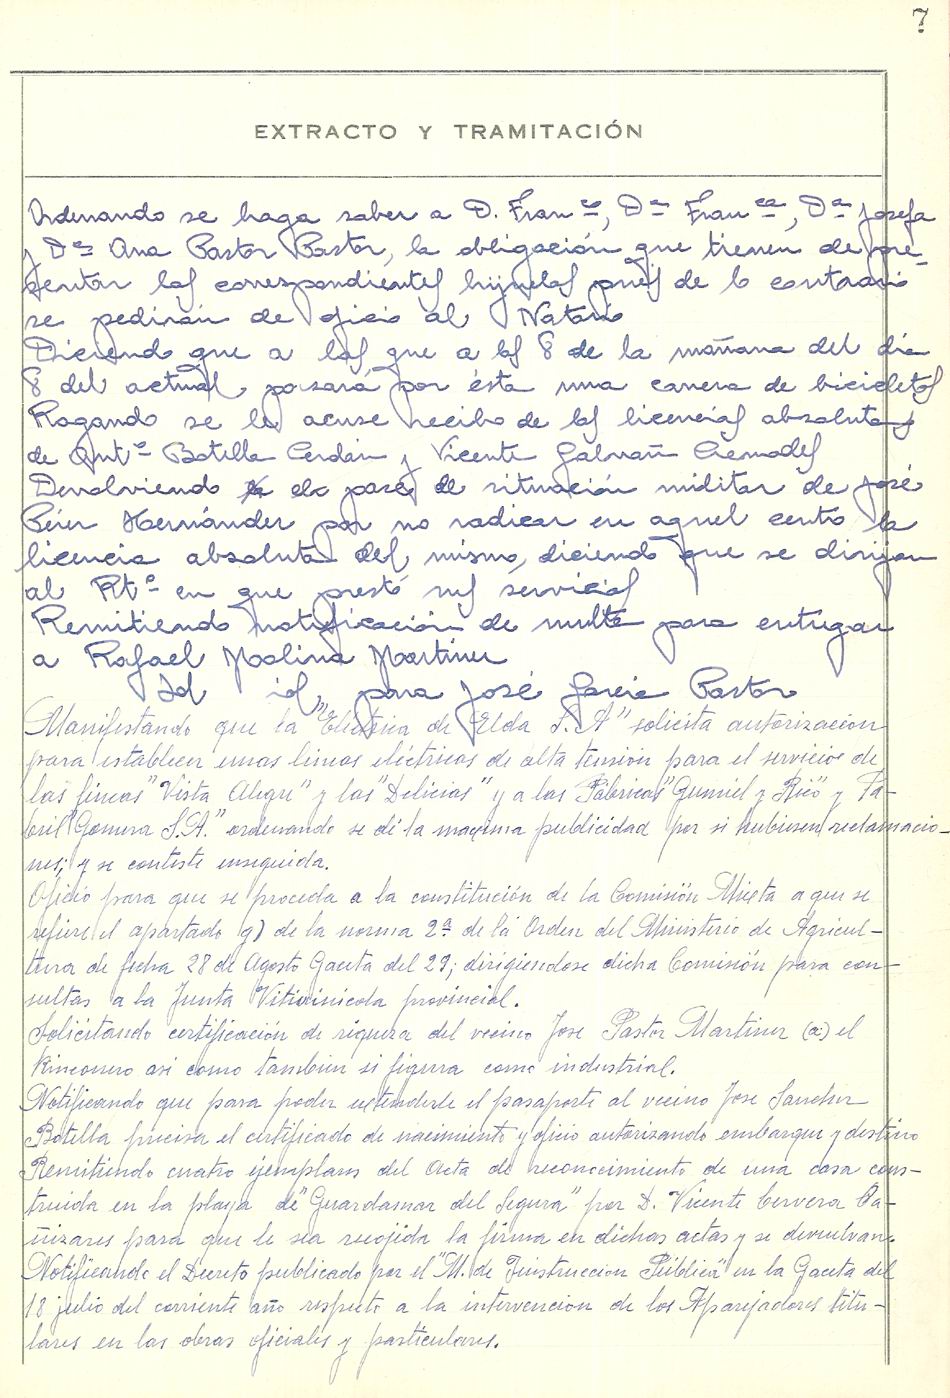 7
EXTRACTO Y TRAMITACIÓN
Ordenando se haga saber a D. Franco, Da Franca, Da Josefa
y Da Ana Pastor Pastor, la obligación que tienen de pre-
sentar las correspondientes hijuelas pues de lo contrario
se pedirán de oficio al Notario
Diciendo que a las que a las 8 de la mañana del dia
8 del actual, pasará por ésta una carrera de bicicletas
Rogando se le acuse recibo de las licencias absolutas
de Anto Botella Cerdán y Vicente Galvañ Cremades
Devolviendo el pase de situación militar de José
Pérez Hernández por no radicar en aquel centro la
licencia absoluta del mismo, diciendo que se dirijan
al Rto en que prestó sus servicios
Remitiendo notificación de multa para entregar
a Rafael Molina Martinez
Id id, para José Garcia Pastor
Manifestando que la "Electrica de Elda S.A" solicita autorizacion
para establecer unas lineas eléctricas de alta tensión para el servicio de
las fincas "Vista Alegre" y las "Delicias" y a las Fábricas "Gumiel y Rico" y Fa-
bril "Gomera S.A." ordenando se dé la maxima publicidad por si hubiesen reclamacio-
nes; y se conteste enseguida.
Oficio para que se proceda a la constitución de la Comisión Mixta a que se
refiere el apartado g) de la norma 2ª de la Orden del Ministerio de Agricul-
tura de fecha 28 de Agosto Gaceta del 29; dirigiendose dicha Comisión para con-
sultas a la Junta Vitivinicola provincial.
Solicitando certificación de riqueza del vecino Jose Pastor Martinez (a) el
Rinconero asi como tambien si figura como industrial.
Notificando que para poder extenderle el pasaporte al vecino Jose Sanchez
Botella precisa el certificado de nacimiento y oficio autorizando embarque y destino
Remitiendo cuatro ejemplares del acta de reconocimiento de una casa cons-
truida en la playa de "Guardamar del Segura" por D. Vicente Cervera Ca-
ñizares para que le sea recojida la firma en dichas actas y se devuelvan.
Notificando el Decreto publicado por el "M. de Instruccion Pública" en la Gaceta del
18 julio del corriente año respecto a la intervencion de los Aparejadores titu-
lares en las obras oficiales y particulares.